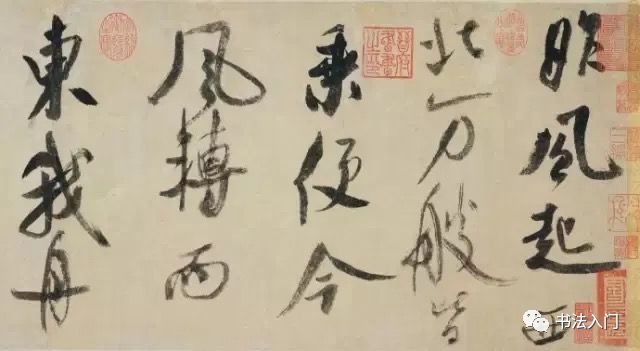 昨風起西
北万艘皆
乘便今
風轉而
東我舟
书法入门